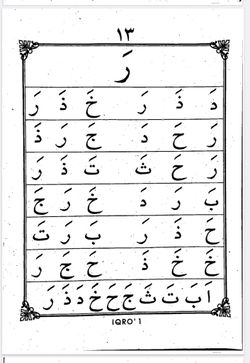 ١٣
رَ
دَ ذَ رَ خَ ذَ رَ
رَ حَ دَ جَ رَ ذَ
رَ حَ ثَ تَ ذَ رَ
بَ رَ دَ خَ رَ جَ
حَ ذَ رَ بَ رَ تَ
خَ خَ ذَ حَ جَ رَ
اَ بَ تَ ثَ جَ حَ خَ دَ ذَ رَ
IQRO' 1